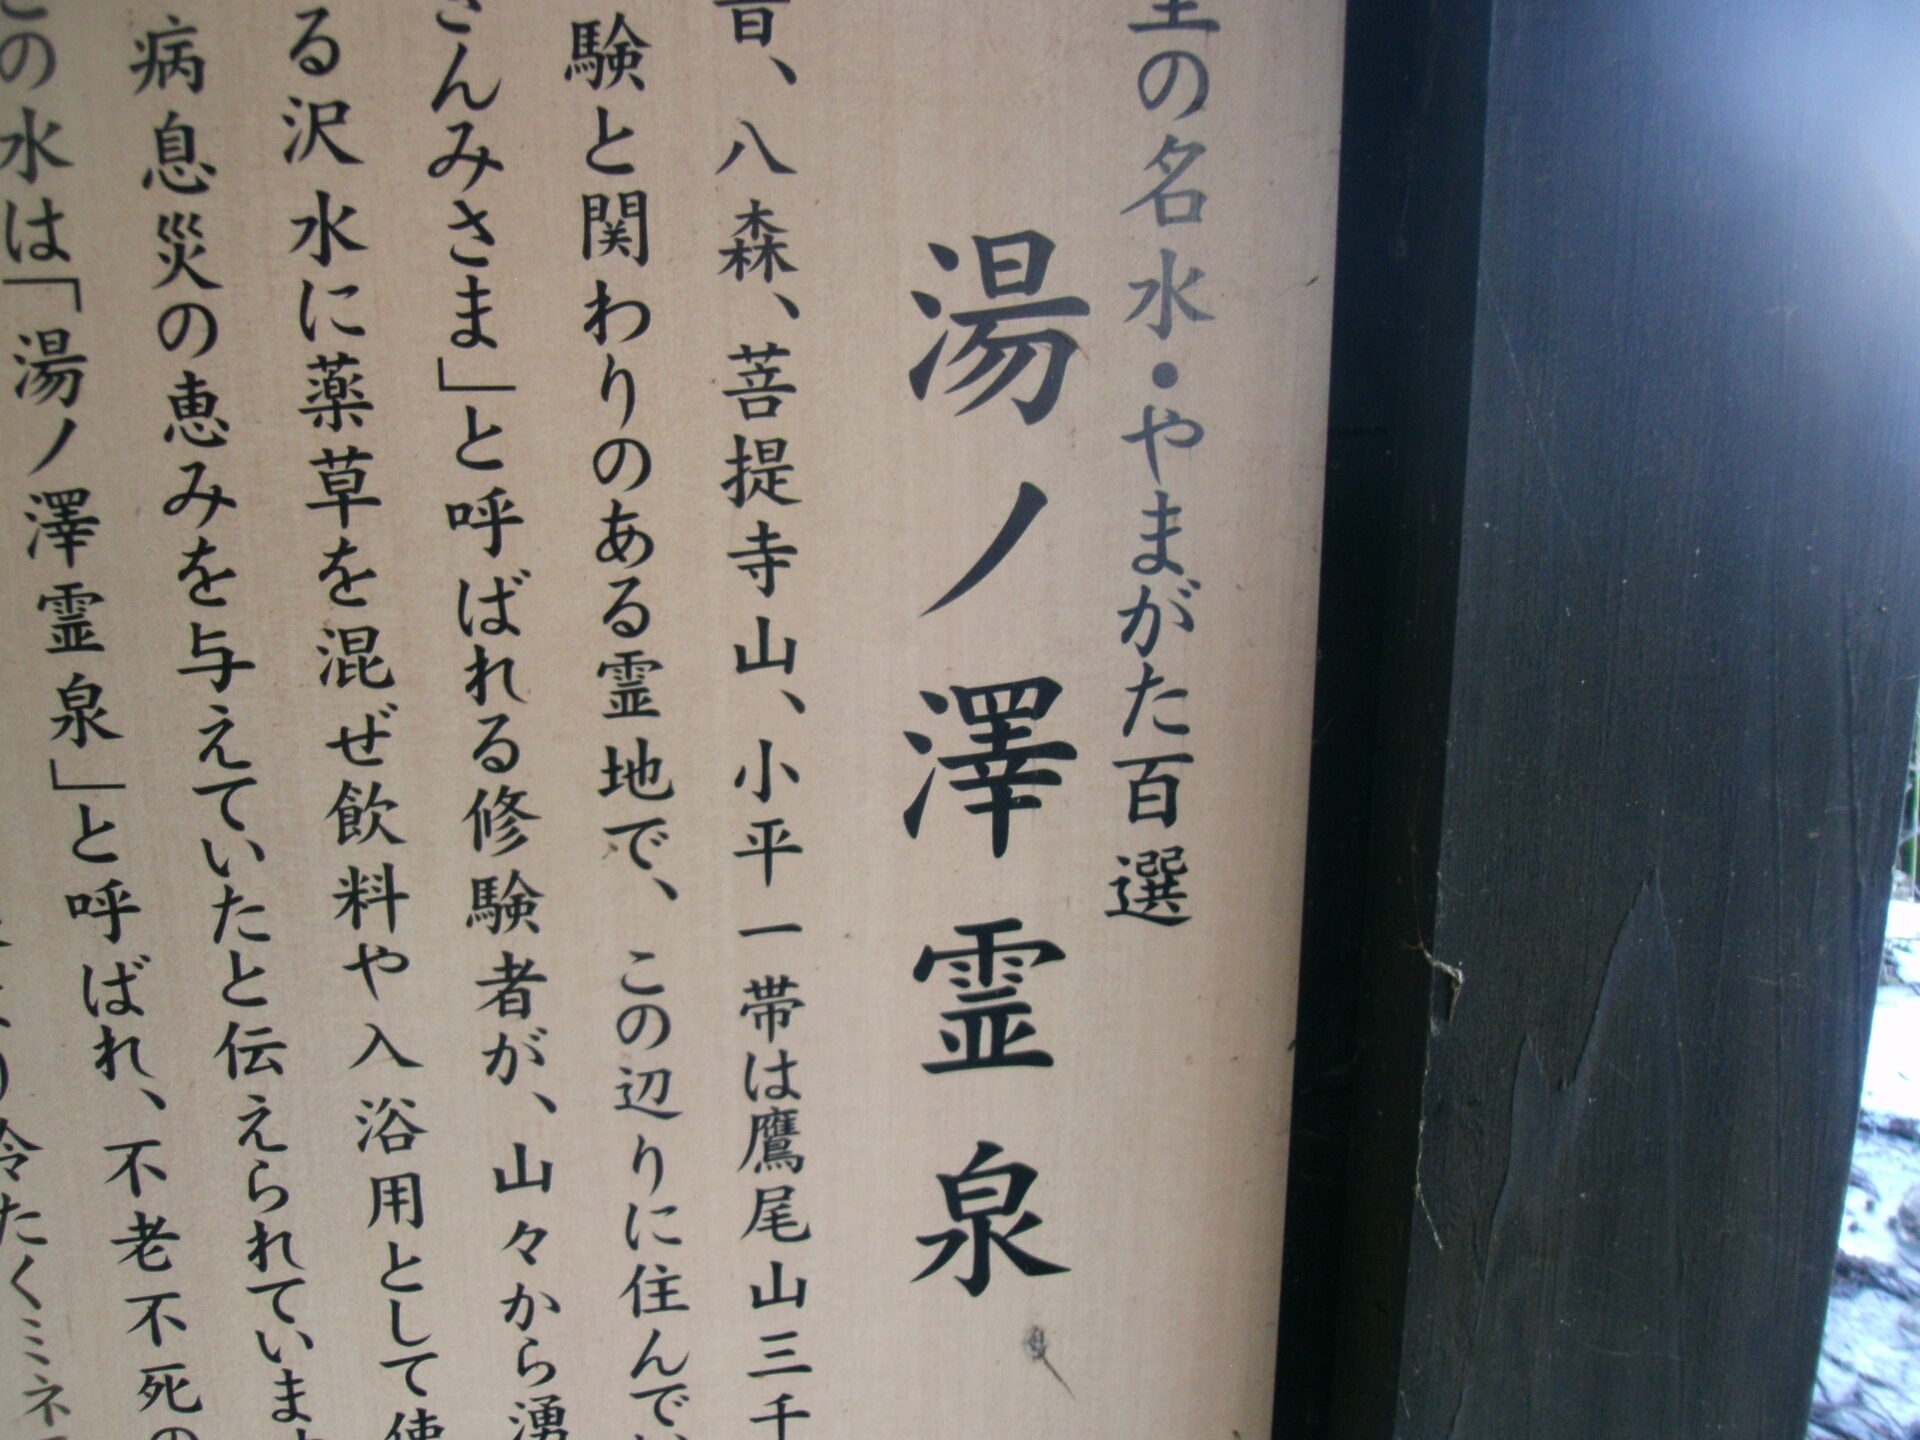 の名水・やまがた百選
湯ノ澤霊泉
昔、八森、菩提寺山、小平一帯は鷹尾山三千
験と関わりのある霊地で、この辺りに住んで
さんみさま」と呼ばれる修験者が、山々から湧
る沢水に薬草を混ぜ飲料や入浴用として使
病息災の恵みを与えていたと伝えられていま
この水は「湯ノ澤霊泉」と呼ばれ、不老不死の
冷たくミネ